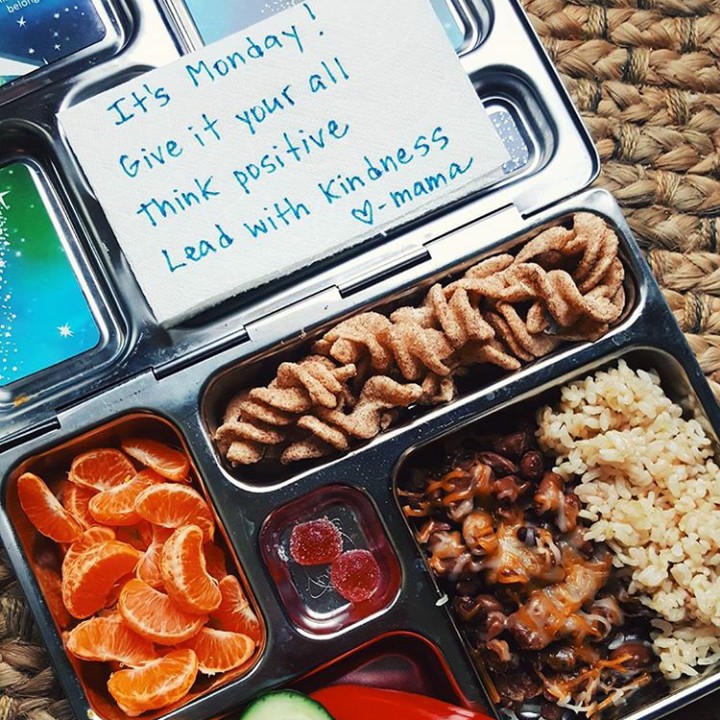 belong
It's Monday!
Give it your all
Think positive
Lead with Kindness
♡-mama